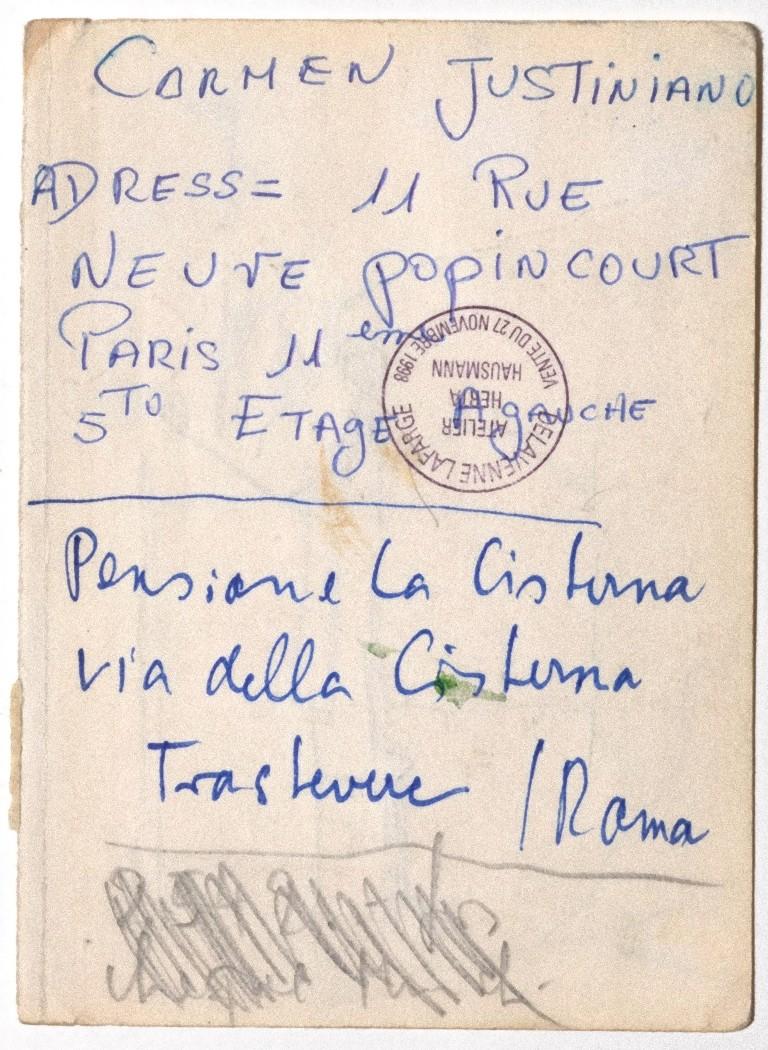 CARMEN JUSTINIANO
ADRESS= 11 RUE
NEUVE POPINCOURT
PARIS 11 eme
5TO ETAGE A gAUCHE
DELAVENNE LAFARGE
VENTE DU 27 NOVEMBRE 1998
ATELIER
HERTA
HAUSMANN
Pensione La Cisterna
via della Cisterna
Trastevere / Roma